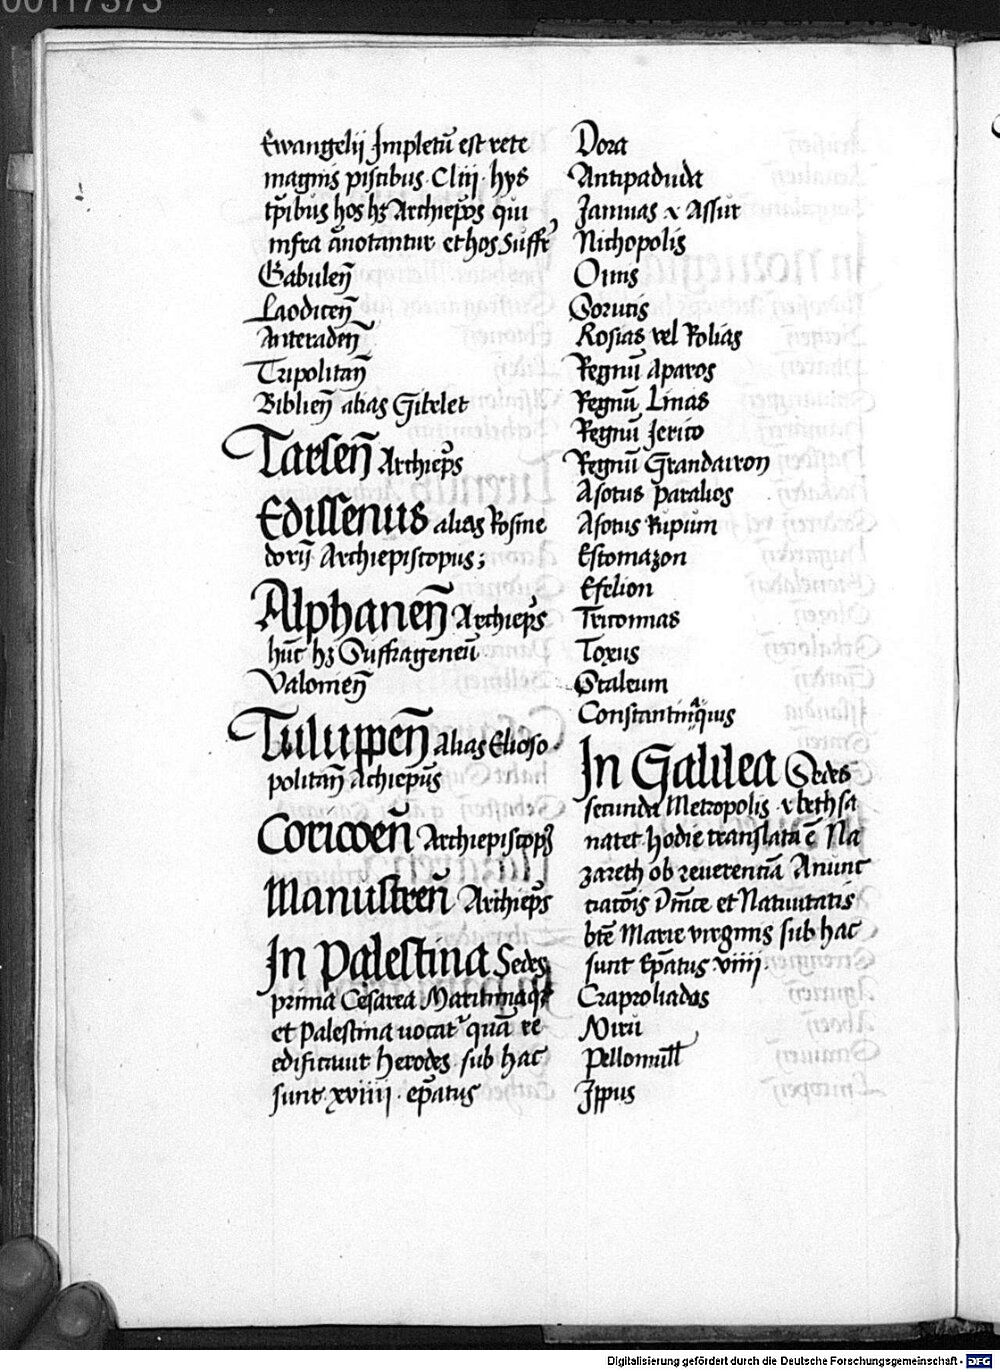 00117373
Ewangelij Impletũ est rete
magnis piscibus. Cliij. hys
tp̃ibus hos hꝫ Archiep̃os qui
infra ãnotantur et hos Suffr̃
Gabuleñ
Laodiceñ
Anteradeñ
Tripolitañ
Biblieñ alias Gibelet
Tarseñ Archiep̃s
Edissenus alias Rosine
dorij Archiepiscopus;
Alphaneñ Archiep̃s
hũc hꝫ Suffrageneũ
Valonieñ
Tuluppeñ Alias Elioso
politañ Achiep̃us
Coricoeñ Archiepiscopꝰ
Manustreñ Archiep̃s
In Palestina Sedes
prima Cesarea Matilimaqꝫ
et Palestina uocatᷣ quã re
edificauit Herodes sub hac
sunt xviiij. ep̃atus
Dora
Antipaduda
Jamnas ⁊ Assur
Nichopolis
Onus
Sorucis
Rosias vel Polias
Regnũ Aparos
Regnũ Linas
Regnũ Jerico
Regnũ Grandairon
Asotus paralios
Asotus Ripium
Estomazon
Efelion
Tricomias
Toxus
Staleum
Constantiniaqius
In Galilea Sedes
secunda Metropolis ⁊ beth sa
natet hodie translata ẽ Na
zareth ob reuerentiã Anunc
iatõis Dñice et Natiuitatis
btẽ Marie virginis sub hac
sunt Ep̃atus viiij.
Czaproliadas
Nirũ
Pellomill
Jppus
Digitalisierung gefördert durch die Deutsche Forschungsgemeinschaft - DFG